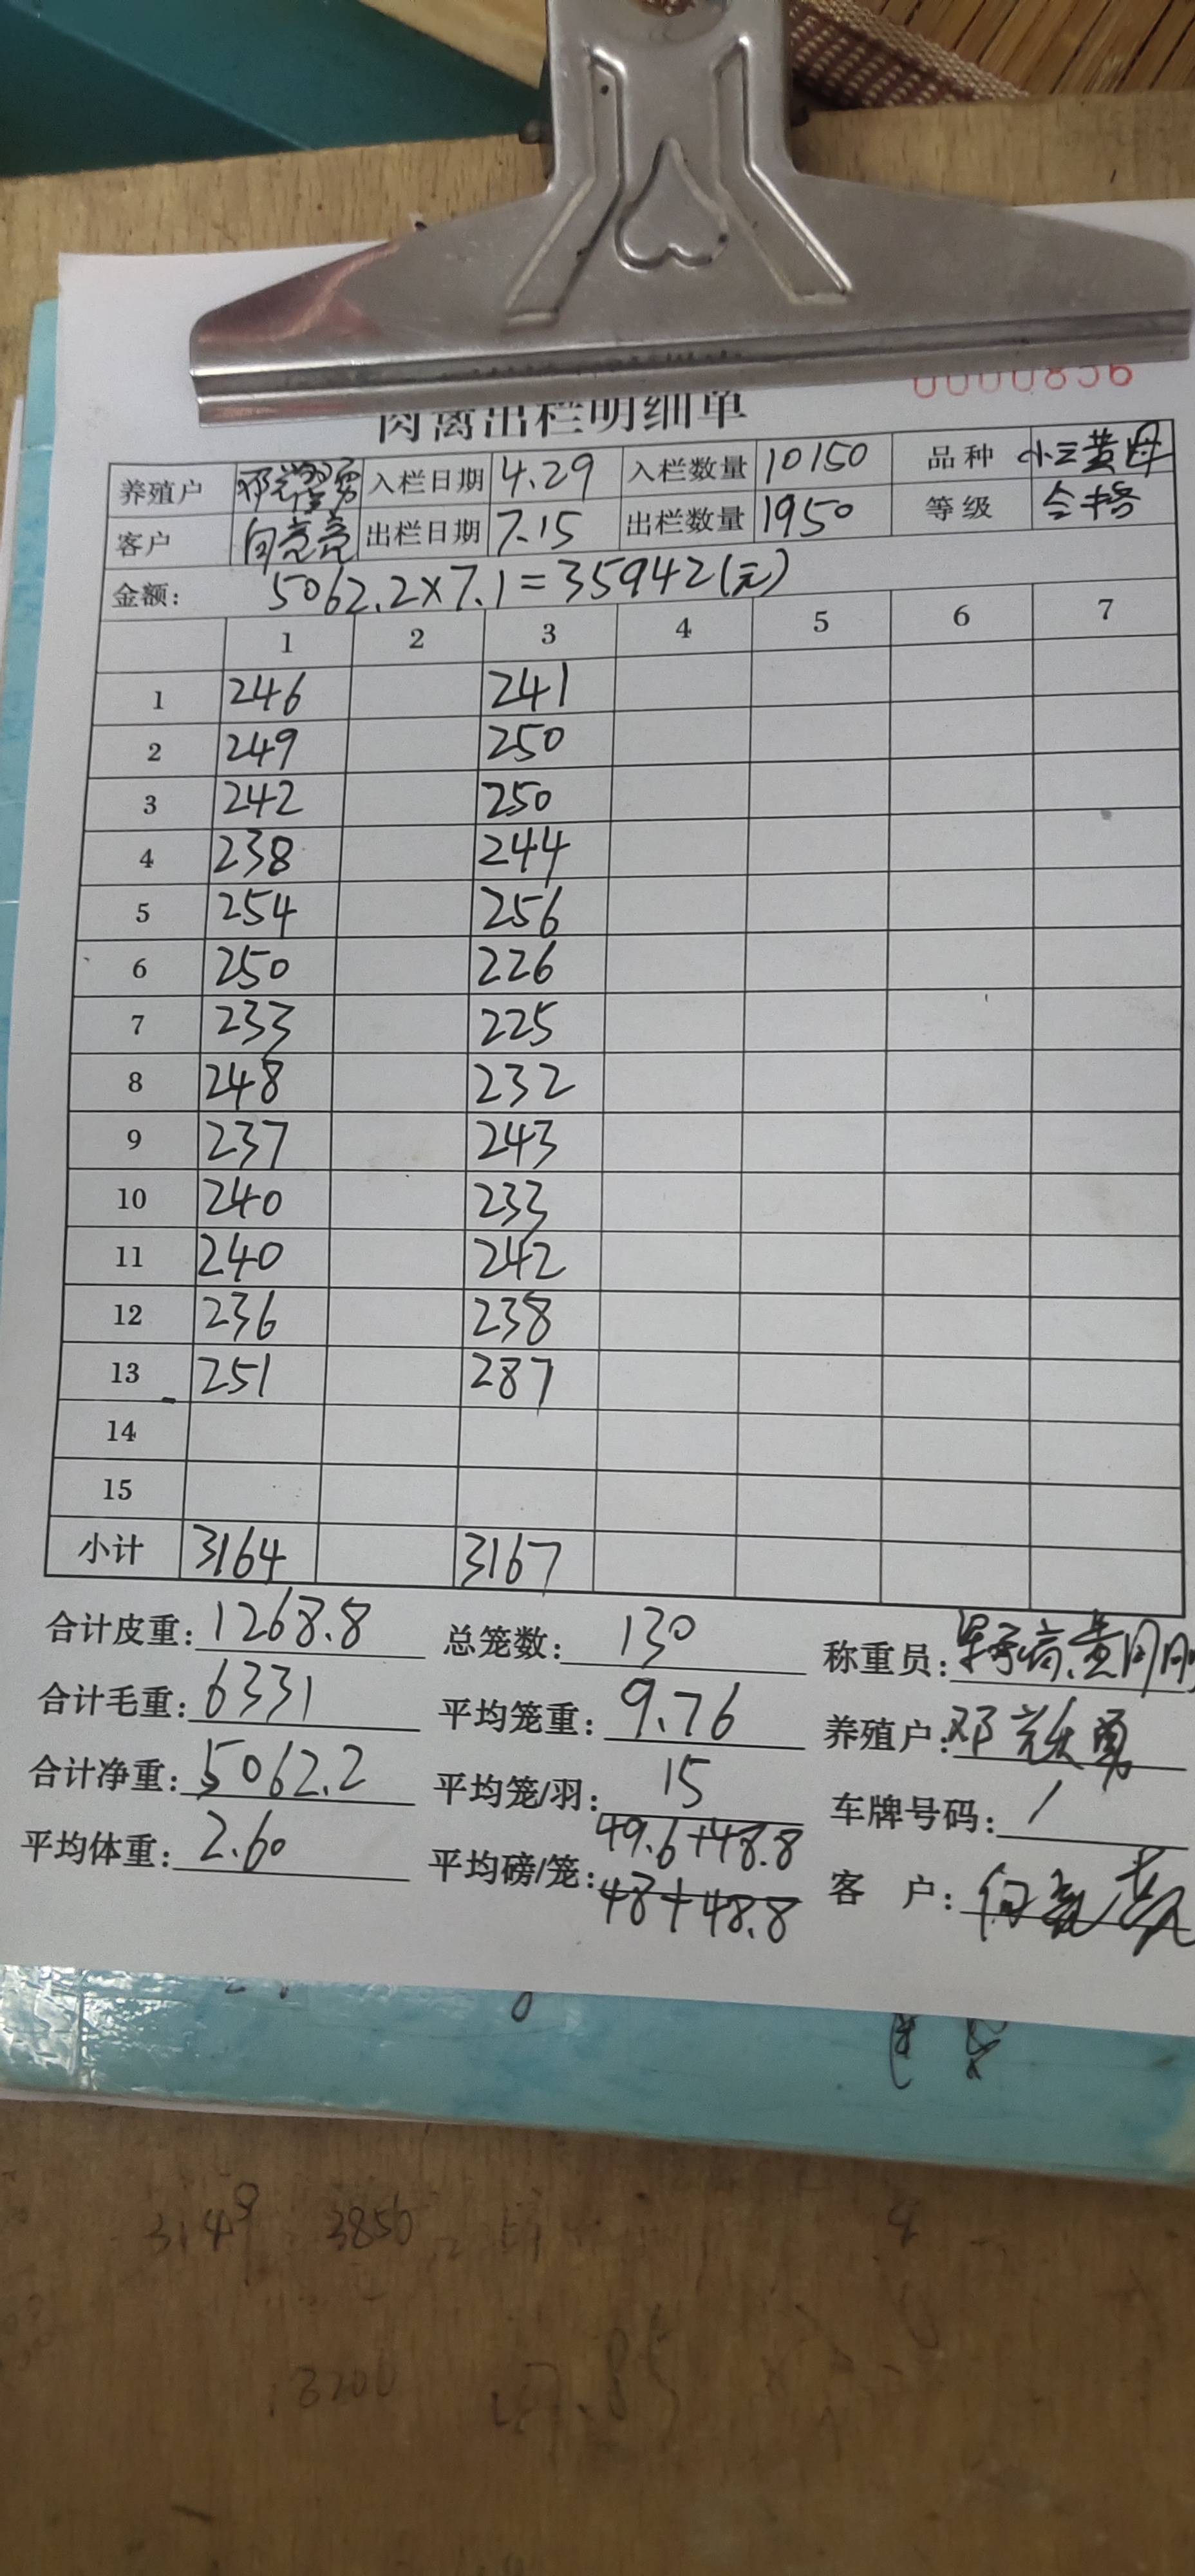 肉禽出栏明细单 0000856
养殖户 入栏日期 4.29 入栏数量 10150 品种 小三黄母
客户 向亮亮 出栏日期 7.15 出栏数量 1950 等级 合格
金额: 5062.2×7.1=35942(元)
1 2 3 4 5 6 7
1 246 241
2 249 250
3 242 250
4 238 244
5 254 256
6 250 226
7 233 225
8 248 232
9 237 243
10 240 233
11 240 242
12 236 238
13 251 287
14
15
小计 3164 3167
合计皮重: 1268.8 总笼数: 130 称重员:
合计毛重: 6331 平均笼重: 9.76 养殖户: 邓
合计净重: 5062.2 平均笼/羽: 15 车牌号码: /
平均体重: 2.60 平均磅/笼: 49.6+48.8 客 户: 向亮亮
48+48.8
3149 3850
3200